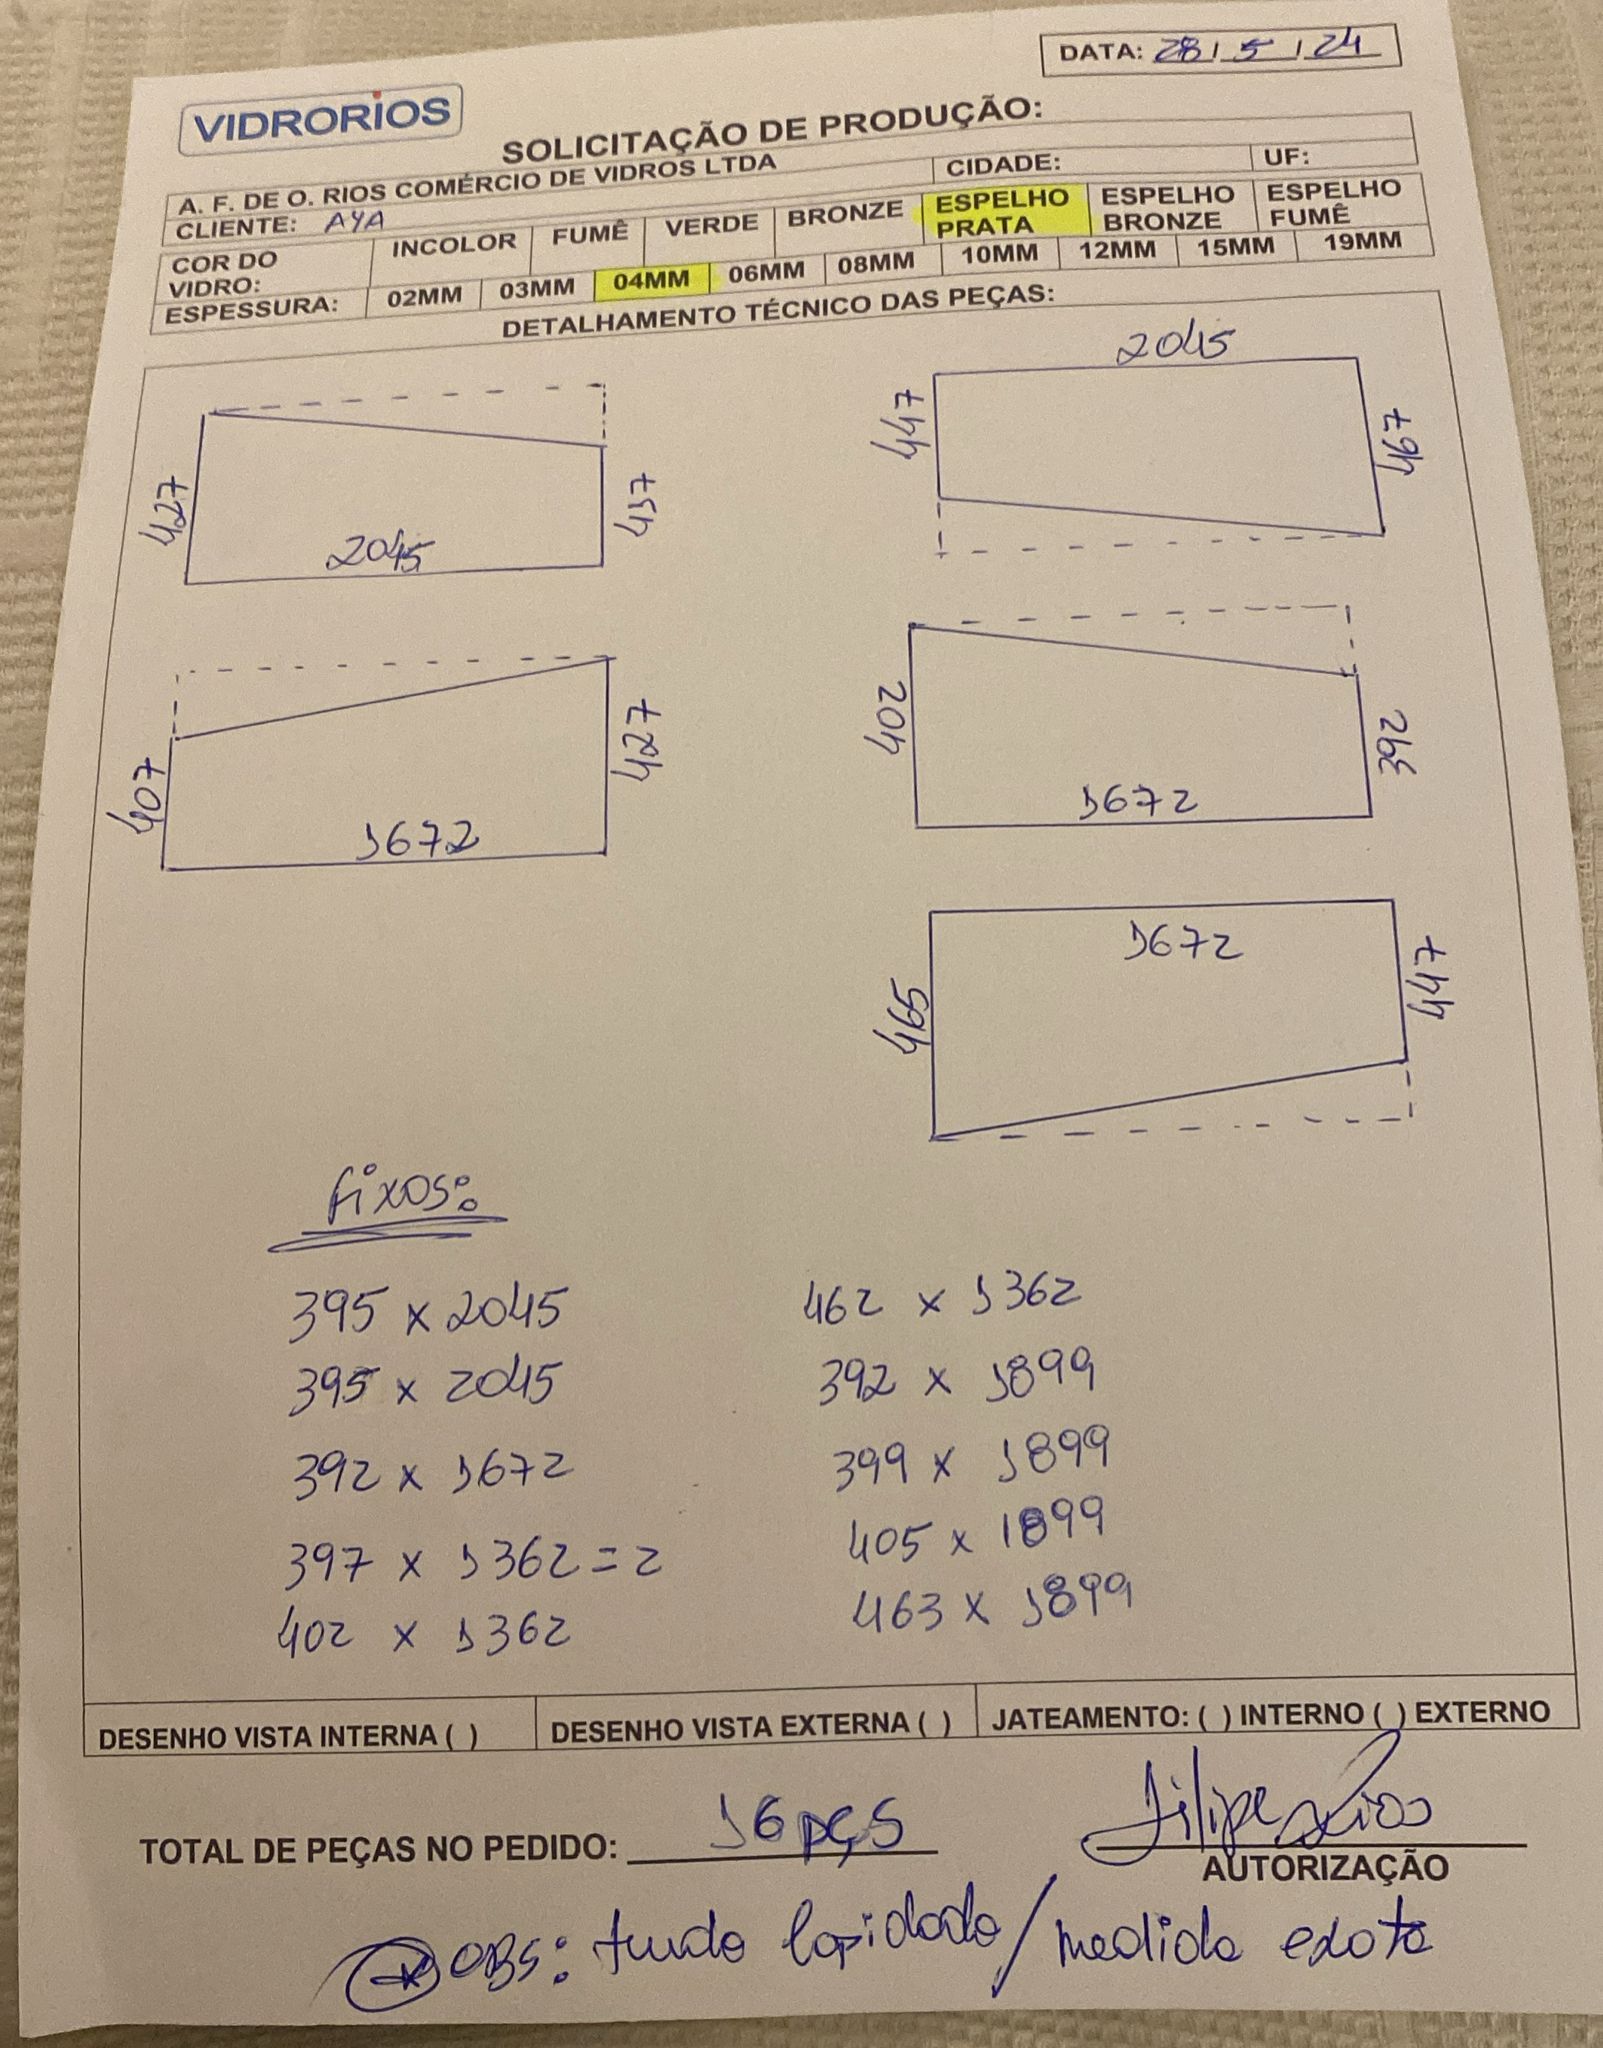 DATA: 28/5/24
VIDRORIOS
SOLICITAÇÃO DE PRODUÇÃO:
A. F. DE O. RIOS COMÉRCIO DE VIDROS LTDA
CLIENTE: AYA CIDADE: UF:
COR DO VIDRO: INCOLOR FUMÊ VERDE BRONZE ESPELHO PRATA ESPELHO BRONZE ESPELHO FUMÊ
ESPESSURA: 02MM 03MM 04MM 06MM 08MM 10MM 12MM 15MM 19MM
DETALHAMENTO TÉCNICO DAS PEÇAS:
427 2045
2045 447 467
407 427 1672
402 393 1672
1672 465 447
fixos:
395 x 2045
395 x 2045
392 x 1672
397 x 1362 = 2
402 x 1362
462 x 1362
392 x 1899
399 x 1899
405 x 1899
463 x 1899
DESENHO VISTA INTERNA ( ) DESENHO VISTA EXTERNA ( ) JATEAMENTO: ( ) INTERNO ( ) EXTERNO
TOTAL DE PEÇAS NO PEDIDO: 16 pçs
Filipe Rios
AUTORIZAÇÃO
OBS: tudo lapidado / medida exata